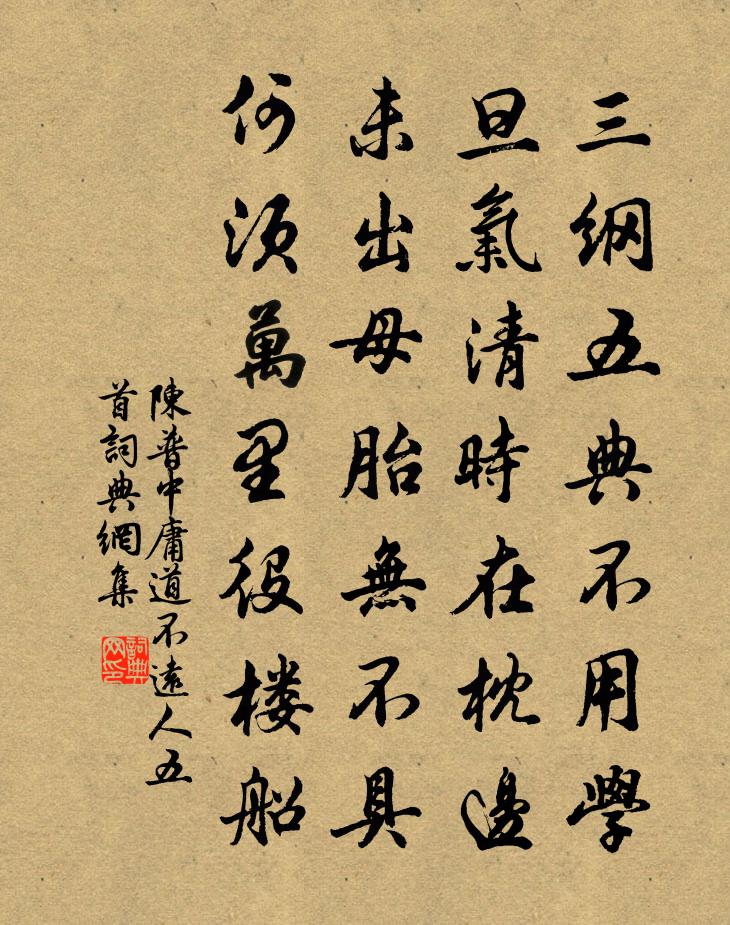 三綱五典不用學
旦氣清時在枕邊
未出母胎無不具
何須萬里役楼船
陳普中庸道不遠人五
首詞典網集
詞典
网印